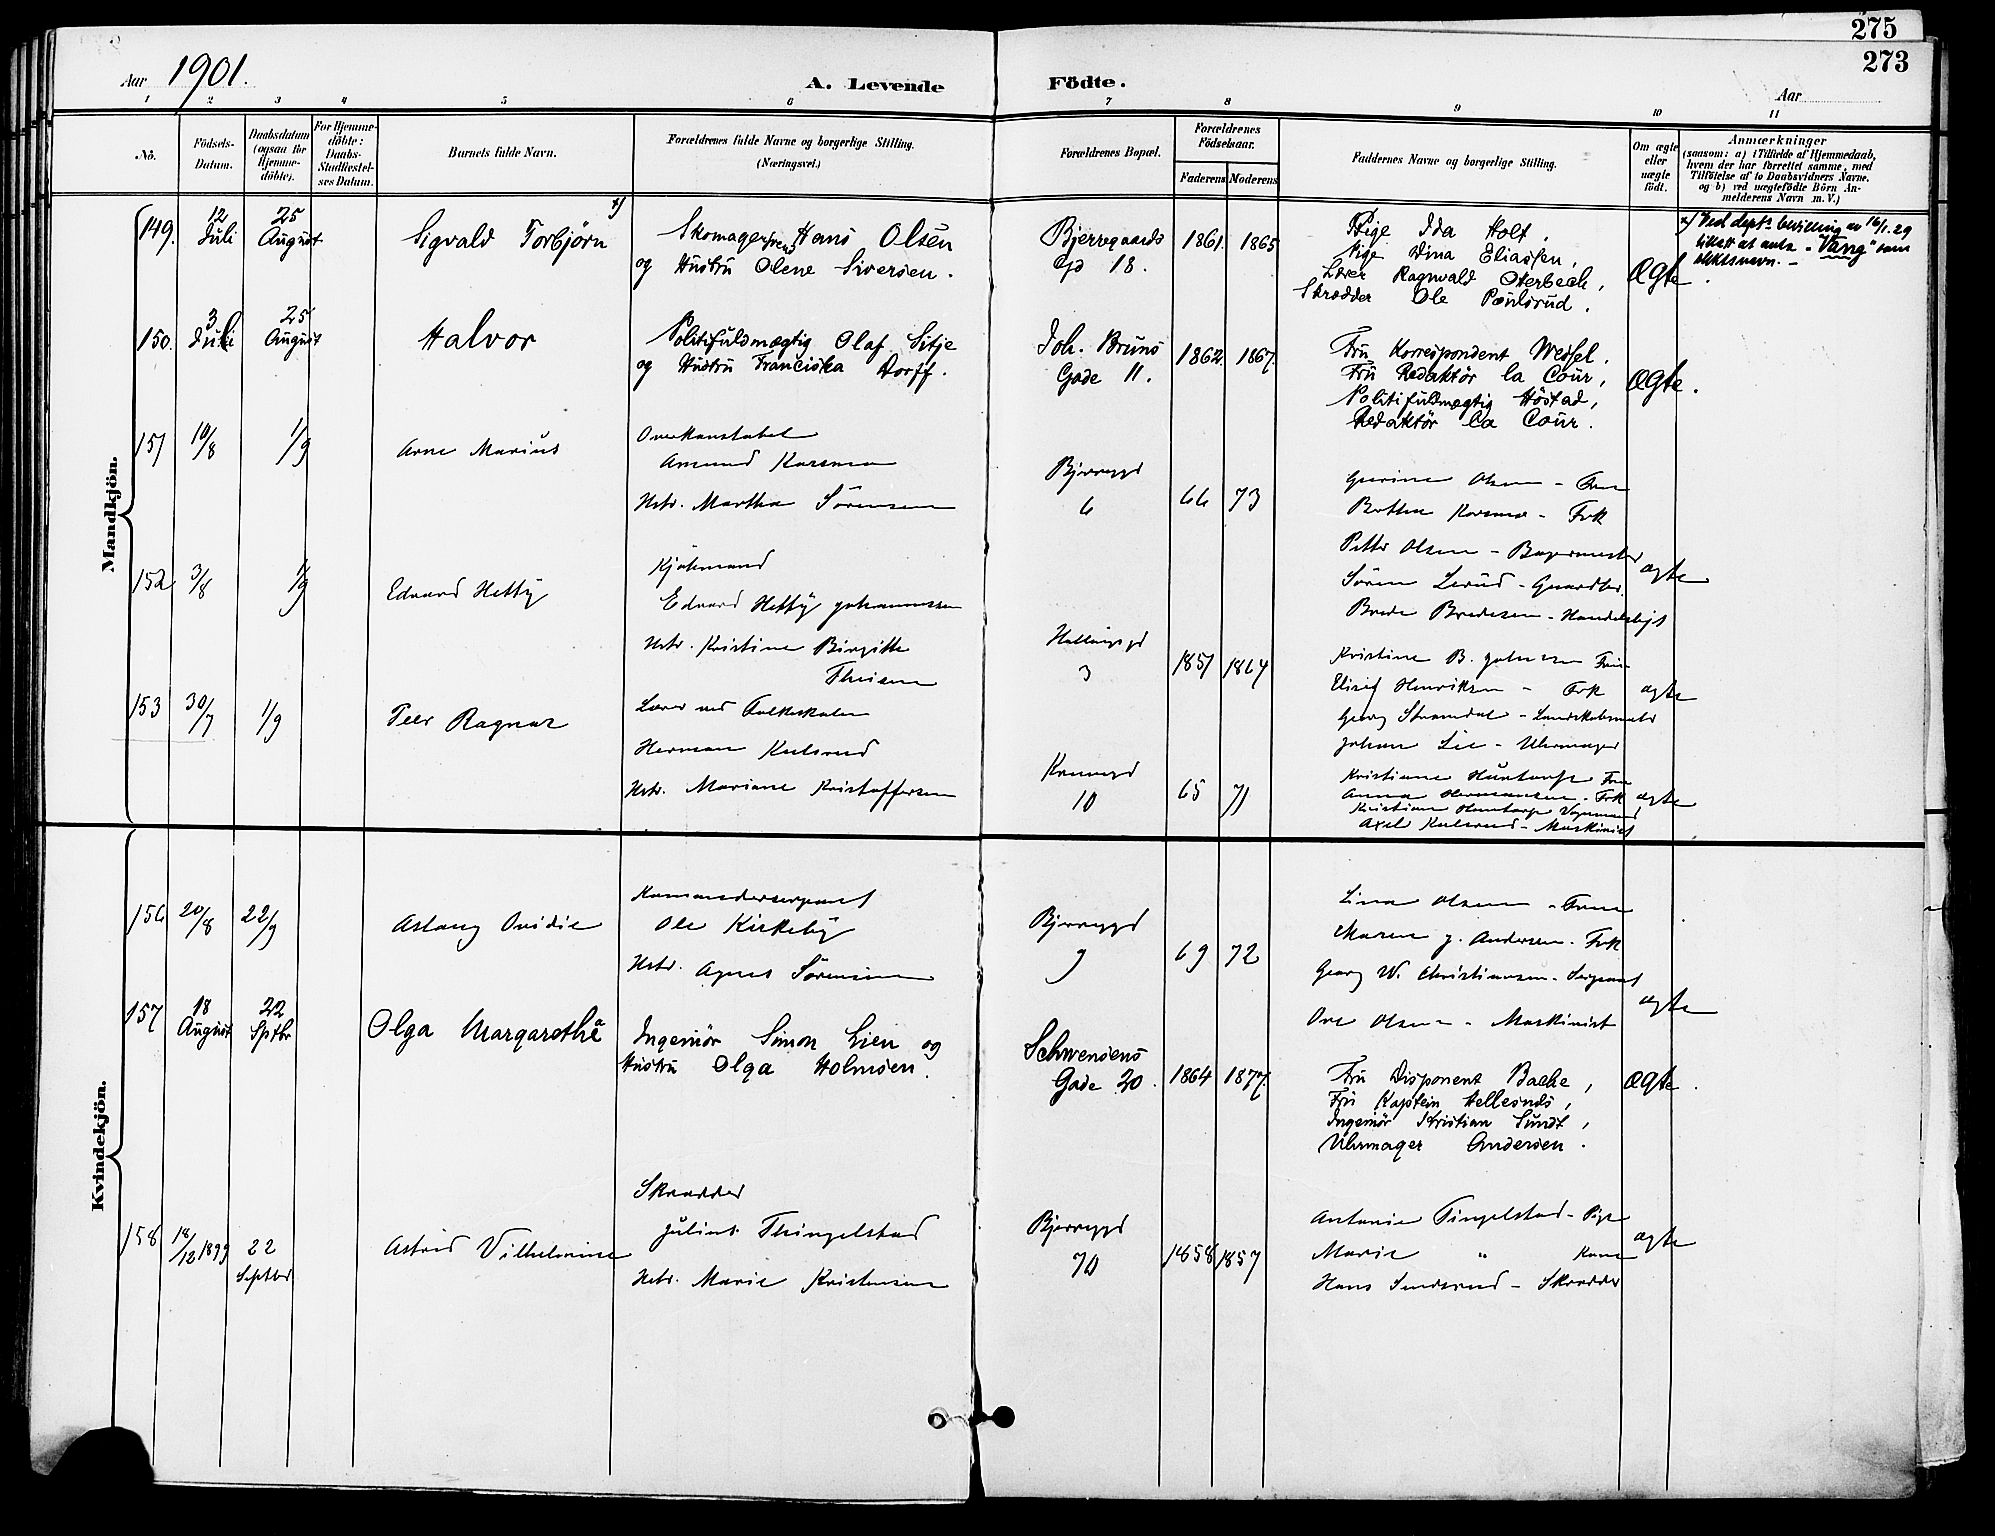 275
273
Aar 1901.
A. Levende Födte.
Aar
1 2 3 4 5 6 7 8 9 10 11
No.
Födsels-Datum.
Daabsdatum (ogsaa for Hjemme-döbte).
For Hjemme-döbte: Daabs-Stadfæstel-ses Datum.
Barnets fulde Navn.
Forældrenes fulde Navne og borgerlige Stilling. (Næringsvei.)
Forældrenes Bopæl.
Forældrenes Födselsaar.
Faderens Moderens
Faddernes Navne og borgerlige Stilling.
Om ægte eller uægte födt.
Anmærkninger
(saasom: a) i Tilfælde af Hjemmedaab,
hvem der har forrettet samme, med
Tilföielse af to Daabsvidners Navne,
og b) ved uægtefödte Börn An-
melderens Navn m. V.)
Mandkjön.
149. 12 Juli 25 August Sigvald Torbjörn x)
Skomager Hans Olsen
og Hustru Olene Siversen.
Bjerregaards
Gd 18.
1861. 1865
Pige Ida Holt.
Pige Dina Eliassen,
Lærer Ragnvald Oterbech,
Skrædder Ole Paulsrud.
Ægte.
x) Ved dept. bevilling av 16/1.29
tillatt at anta "Vang" som
slektsnavn. -
150. 3 Juli 25 August Halvor
Politifuldmægtig Olaf Sitje
og Hustru Franciska Dorff.
Joh. Bruns
Gade 11.
1862. 1867.
Fru Korrespondent Wessel.
Fru Redaktör la Cour,
Politifuldmægtig Höstad,
Redaktör la Cour.
Ægte.
151 10/8 1/9 Arne Marius
Overkonstabel
Amund Korsmo
Hstr. Martha Sörensen
6
66 73
Olsen - Frue
Korsmo - Frk
Petter Olsen -
Sören Lerud -
Brede Bredesen -
ægte
152 3/8 1/9 Edvard Hetty
Kjöbmand
Edvard Hetty Johannessen
Hstr. Kristine Birgitte
3
1857 1864
Kristine B.
Henriksen - Frk
Georg
Johan Lie - Uhrmager
ægte
153 30/7 1/9 Peer Ragnar
Lærer ved Folkeskolen
Herman Kulsrud
Hstr. Mariane Kristoffersen
10
65 71
Kristiane
Anna Hermansen - Frk
Kristian
Axel Kulsrud - Maskinist
ægte
Kvindekjön.
156 20/8 22/9 Aslaug Ovidie
Ole Kirkeby
Hstr. Agnes Sörensen
9
69 72
Lina Olsen - Frue
Maren J. Andersen - Frk
Georg W. Christiansen - Sergeant
Ove Olsen - Maskinist
ægte
157 18 August 22 Sptbr Olga Margarethe
Ingeniör Simon Lien og
Hustru Olga Holmsen.
Schwensens
Gade 20.
1864 1877.
Fru Disponent Bache,
Fru Kaptein Hellesnes,
Ingeniör Kristian Sundt,
Uhrmager Andersen.
Ægte.
158 18/12 1899 22 Septbr Astrid Vilhelmine
Skrædder
Julius Thingelstad
Hstr. Marie Kristensen
70
1858 1857
Antonie Tingelstad - Pige
Marie " Kone
Hans - Skrædder
ægte